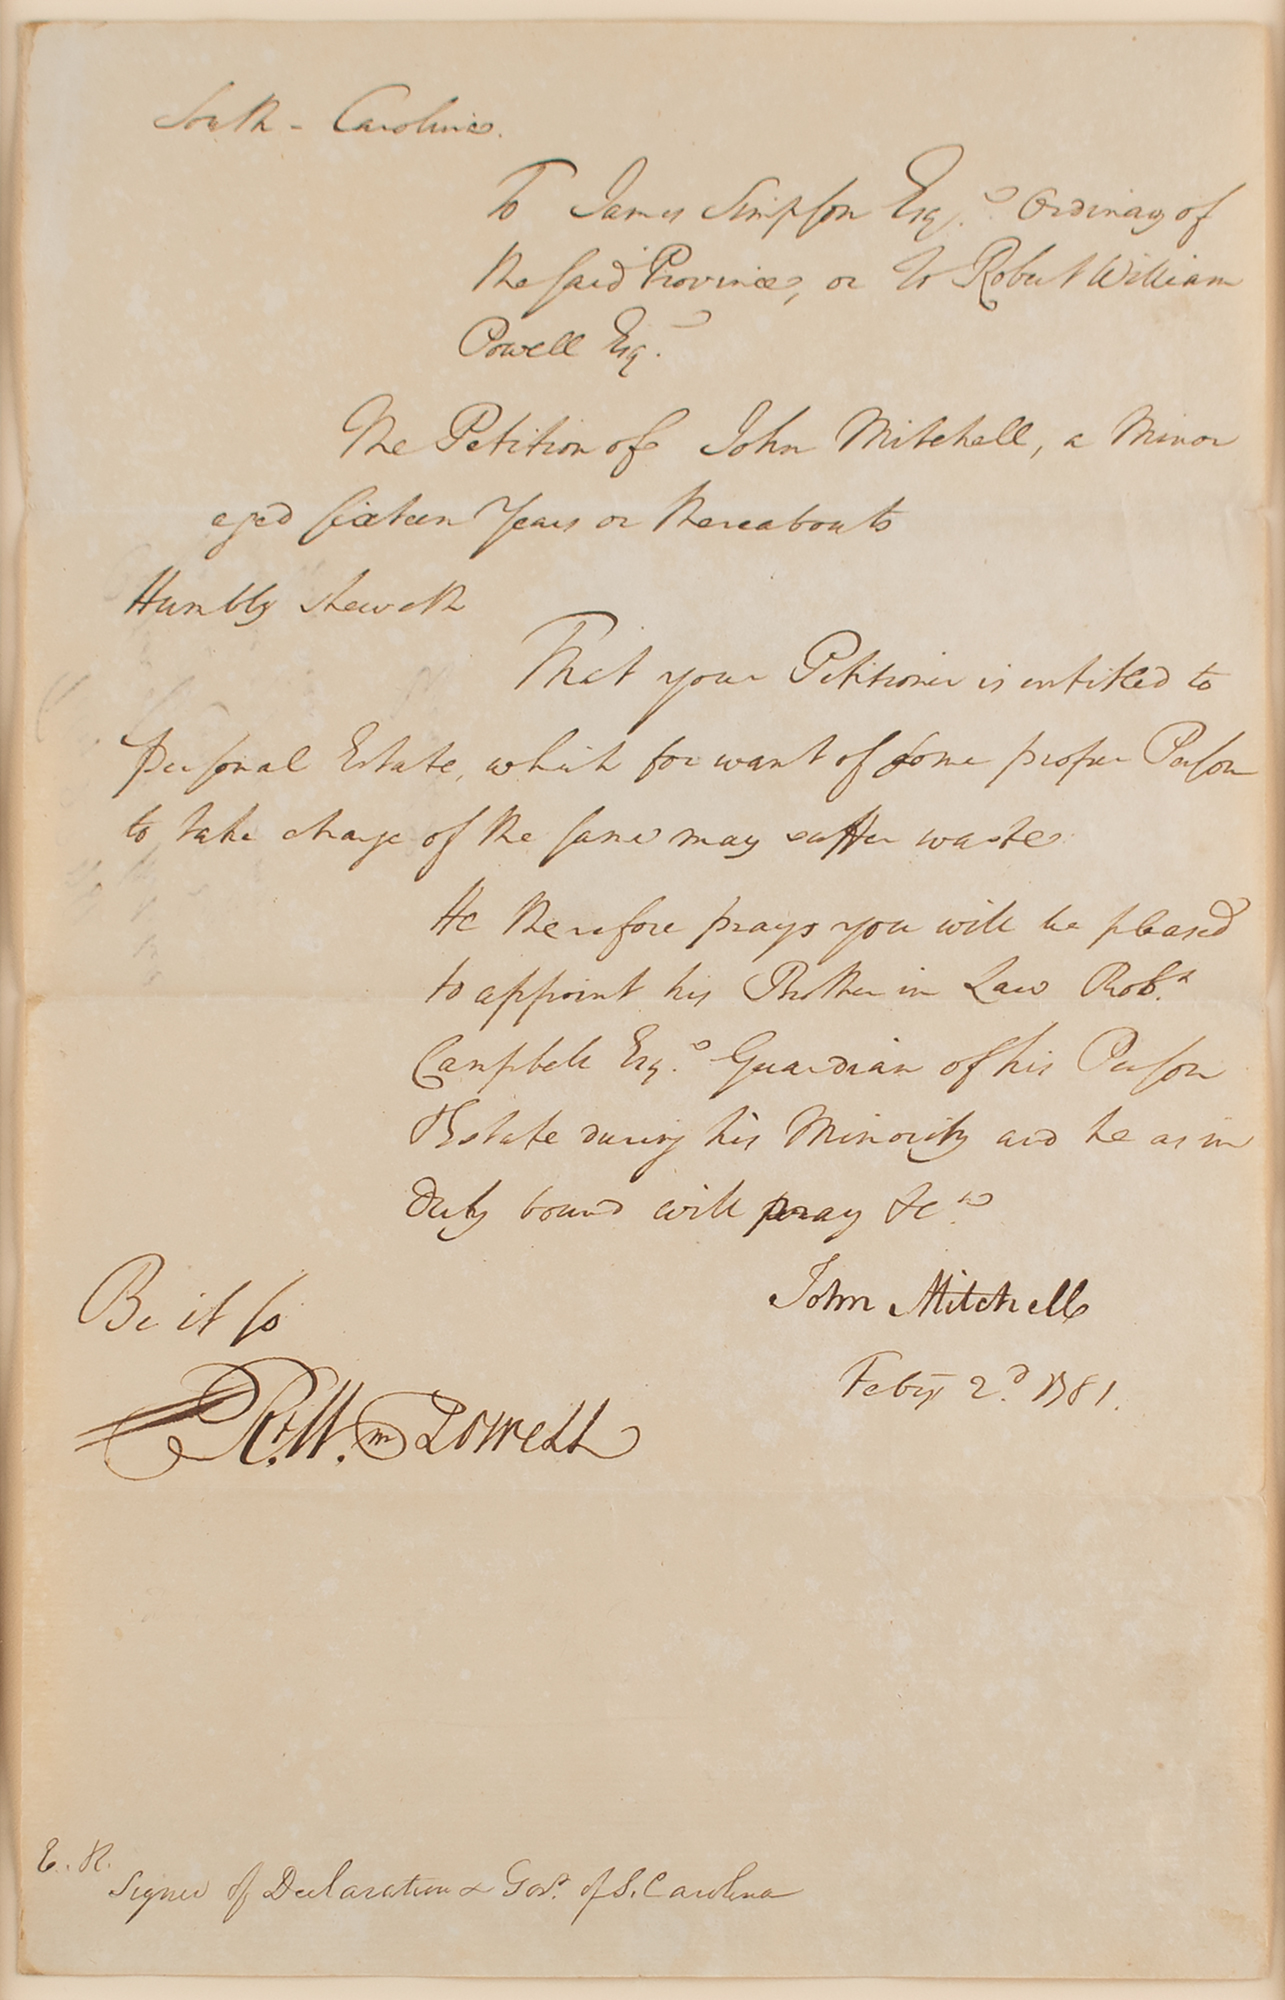 South - Carolina.
To James Simpson Esq.r Ordinary of
the said Province, or to Robert William
Powell Esq.r
The Petition of John Mitchell, a Minor
aged sixteen Years or thereabouts
Humbly sheweth
That your Petitioner is entitled to
personal Estate, which for want of some proper Person
to take charge of the same may suffer waste
He therefore prays you will be pleased
to appoint his Brother in Law Rob.t
Campbell Esq.r Guardian of his Person
& Estate during his Minority and he as in
Duty bound will pray &c.a
John Mitchell
Be it so
Feby 2.d 1781.
R.t W.m Powell
E. R.
Signer of Declaration & Gov.r of S. Carolina